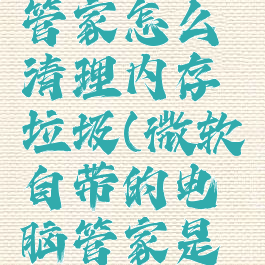 管家怎么
清理内存
垃圾(微软
自带的电
脑管家是